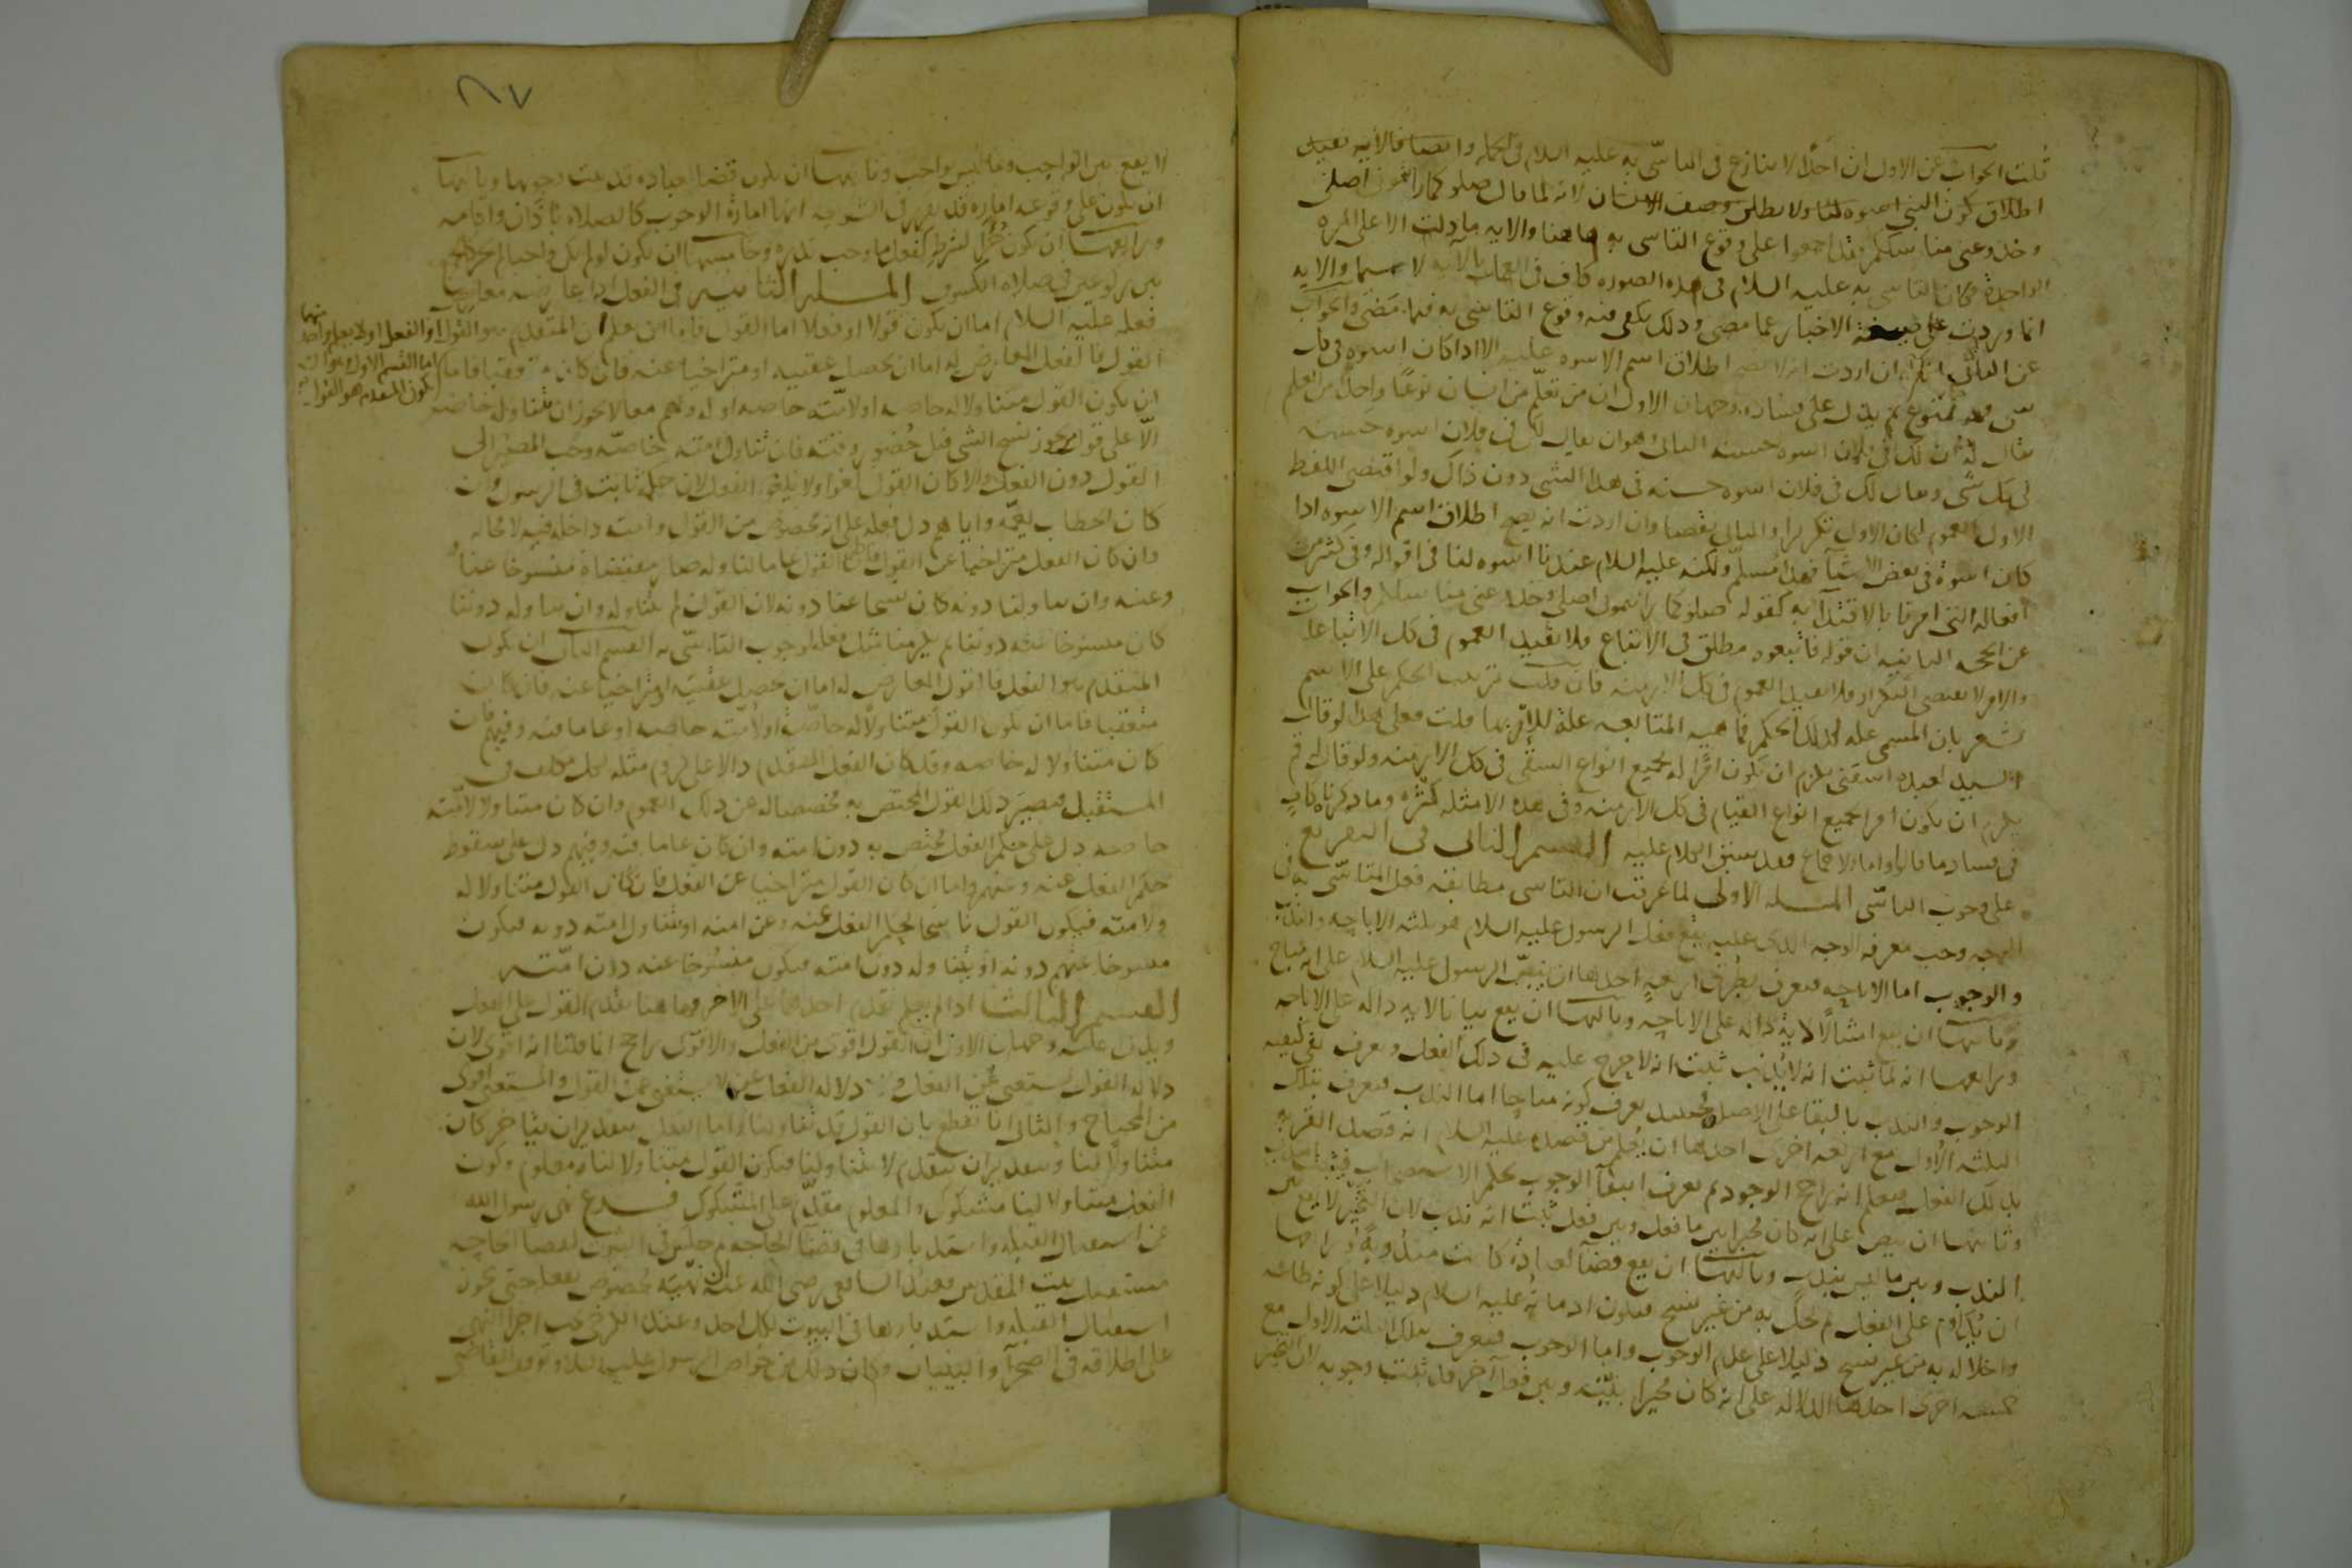 قلت الجواب عن الاول ان احدا لا ينازع في التاسي به عليه السلام في الجملة وايضا فالآية تفيد
اطلاق كون النبي اسوة لنا ولا يطلق وصف الانسان لانه لما قال صلوا كما رايتموني اصلي
وخذوا عني مناسككم فقد اجمعوا على وقوع التاسي به هاهنا والاية ما دلت الا على المرة
الواحدة فكان التاسي به عليه السلام في هذه الصورة كاف في العمل بالآية لا سيما والاية
انما وردت على صيغة الاخبار عما مضى وذلك يكفي فيه وقوع التاسي به فيما مضى والجواب
عن الثاني انكم ان اردت انه لا يصح اطلاق اسم الاسوة عليه الا اذا كان اسوة في كل
شي فهو ممنوع ثم يدل على فساده وجهان الاول ان من تعلم من انسان نوعا واحدا من العلم
يقال له ان لك في فلان اسوة حسنة الثاني وهو ان يقال لك في فلان اسوة حسنة
في كل شي ويقال لك في فلان اسوة حسنة في هذا الشي دون ذاك ولو اقتضى اللفظ
الاول العموم لكان الاول تكريرا والثاني نقضا وان اردت انه يصح اطلاق اسم الاسوة اذا
كان اسوة في بعض الاشيا فهذا مسلم ولكنه عليه السلام عندنا اسوة لنا في اقواله وفي كثير من
افعاله التي امرنا بالاقتدا به كقوله صلوا كما رايتموني اصلي وخذوا عني مناسككم والجواب
عن الحجة الثانية ان قوله فاتبعوه مطلق في الاتباع فلا تفيد العموم في كل الاتباعات
والامر لا يقتضي التكرار فلا يفيد العموم في كل الازمنة فان قلت ترتيب الحكم على الاسم
يشعر بان المسمى علة لذلك الحكم فماهية المتابعة علة للامر بها قلت فعلى هذا لو قال
السيد لعبده اسقني يلزم ان يكون امرا له بجميع انواع السقي في كل الازمنة ولو قال له قم
يلزم ان يكون امرا بجميع انواع القيام في كل الازمنة وفي هذه الامثلة كثرة وما ذكرناه كاف
في فساد ما قالوا واما الاجماع فقد سبق الكلام عليه القسم الثاني في التفريع
على وجوب التاسي المسلة الاولى لما عرفت ان التاسي مطابقة فعل المتاسى به في
الوجه وجب معرفة الوجه الذي عليه يقع فعل الرسول عليه السلام هو ثلثة الاباحة والندب
والوجوب اما الاباحة فيعرف بطرق اربعة احدها ان ينص الرسول عليه السلام على انه مباح
وثانيها ان يقع امتثالا لاية دالة على الاباحة وثالثها ان يقع بيانا لاية دالة على الاباحة
ورابعها انه لما ثبت انه لا يذنب ثبت انه لا حرج عليه في ذلك الفعل ويعرف نفي كيفية
الوجوب والندب بالبقا على الاصل فحينئذ يعرف كونه مباحا اما الندب فيعرف بتلك
الثلثة الاول مع اربعة اخرى احدها ان يعلم من قصده عليه السلام انه قصد القربة
بذلك الفعل فيعلم انه راجح الوجود ثم يعرف انتفا الوجوب بحكم الاستصحاب فيثبت الندب
وثانيها ان ينص على انه كان مخيرا بين ما فعل وبين فعل ثبت انه ندب لان التخيير لا يقع بين
الندب وبين ما ليس بندب وثالثها ان يقع قضا لعبادة كانت مندوبة ورابعها
ان يداوم على الفعل ثم يخل به من غير نسخ فتكون ادامته عليه السلام دليلا على كونه طاعة
واخلاله به من غير نسخ دليلا على عدم الوجوب واما الوجوب فيعرف بتلك الثلثة الاول مع
خمسة اخرى احدها الدلالة على انه كان مخيرا بينه وبين فعل آخر قد ثبت وجوبه لان التخيير
٨٧
لا يقع بين الواجب وما ليس بواجب وثانيها ان يكون قضا لعبادة قد ثبت وجوبها وثالثها
ان يكون على وقوعه امارة قد تقرر في الشريعة انها امارة الوجوب كالصلاة باذان واقامة
ورابعها ان يكون جزا لشرط كفعل ما وجب بنذره وخامسها ان يكون لو لم يكن واجبا لم يجز كالجمع
بين ركوعين في صلاة الكسوف المسلة الثانية في الفعل اذا عارضه معارض
فعله عليه السلام اما ان يكون قولا او فعلا اما القول فاما ان يعلم ان المتقدم هو القول او الفعل او لا يعلم واحد منهما
اما القسم الاول وهو ان يكون المتقدم هو القول
القول فالفعل المعارض له اما ان يحصل عقيبه او متراخيا عنه فان كان متعقبا فاما
ان يكون القول متناولا له خاصة او لامته خاصة او له ولهم معا لا يجوز ان يتناوله خاصة
الا على قول من يجوز نسخ الشي قبل حضور وقته فان تناول امته خاصة وجب المصير الى
القول دون الفعل والا كان القول لغوا ولا يلغو الفعل لان حكمه ثابت في الرسول وان
كان الخطاب يعمه واياهم دل فعله على انه مخصوص من القول وامته داخلة فيه لا محالة
وان كان الفعل متراخيا عن القول فان كان القول عاما لنا وله صار مقتضاه منسوخا عنا
وعنه وان تناولنا دونه كان نسخا عنا دونه لان القول لم يتناوله وان تناوله دوننا
كان منسوخا عنه دوننا ثم يلزمنا مثل فعله لوجوب التاسي به القسم الثاني ان يكون
المتقدم هو الفعل فالقول المعارض له اما ان يحصل عقيبه او متراخيا عنه فان كان
متعقبا فاما ان يكون القول متناولا له خاصة او لامته خاصة او عاما فيه وفيهم فان
كان متناولا له خاصة وقد كان الفعل المتقدم دالا على لزوم مثله لكل مكلف في
المستقبل فيصير ذلك القول المختص به مخصصا له عن ذلك العموم وان كان متناولا لامته
خاصة دل على حكم الفعل مختص به دون امته وان كان عاما فيه وفيهم دل على سقوط
حكم الفعل عنه وعنهم واما ان كان القول متراخيا عن الفعل فان كان القول متناولا له
ولامته فيكون القول ناسخا لحكم الفعل عنه وعن امته او يتناول امته دونه فيكون
منسوخا عنهم دونه او يتناوله دون امته فيكون منسوخا عنه دون امته
القسم الثالث اذا لم يعلم تقدم احدهما على الاخر وهاهنا يقدم القول على الفعل
ويدل عليه وجهان الاول ان القول اقوى من الفعل والاقوى راجح انما قلنا انه اقوى لان
دلالة القول تستغني عن الفعل ودلالة الفعل لا تستغني عن القول والمستغني اقوى
من المحتاج والثاني انا نقطع بان القول قد تناولنا واما الفعل فبتقدير ان يتاخر كان
متناولا لنا وبتقدير ان يتقدم لا يتناولنا فيكون القول متناولا لنا معلوم وكون
الفعل متناولا لنا مشكوك والمعلوم مقدم على المشكوك فرع نهى رسول الله
عن استقبال القبلة واستدبارها في قضا الحاجة ثم جلس في البيوت لقضا الحاجة
مستقبل بيت المقدس فعند الشافعي رضي الله عنه ان نهيه مخصوص بفعله حتى يجوز
استقبال القبلة واستدبارها في البيوت لكل احد وعند الكرخي يجب اجرا النهي
على اطلاقه في الصحرا والبنيان وكان ذلك من خواص الرسول عليه السلام وتوقف القاضي